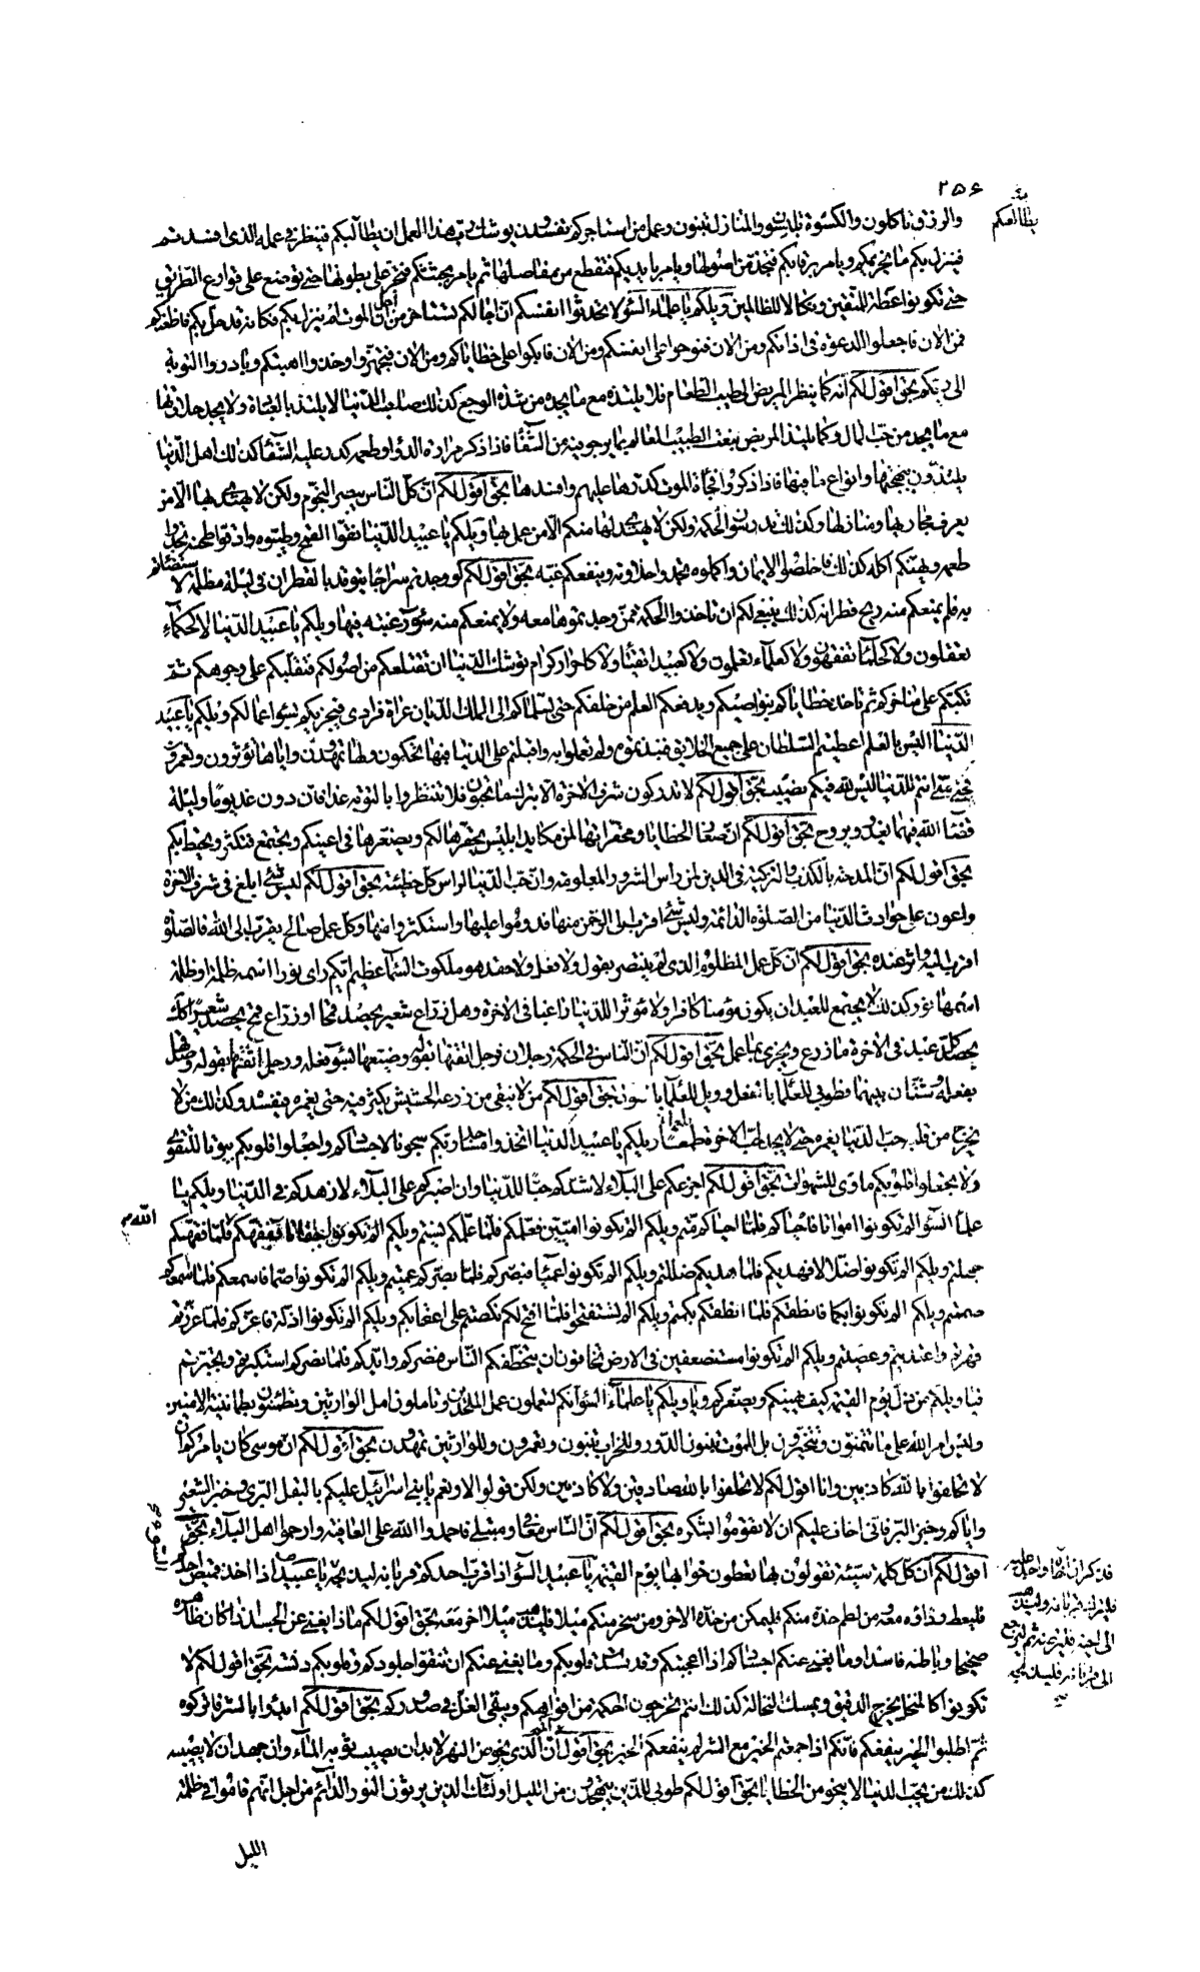 ٢٥٦
والرزق تاكلون والكسوة تلبسون والمنازل تبنون وعمل من استاجركم تفسدون يوشك رب هذا العمل ان يطالبكم فينظر في عمله الذي افسدتم
فينزل بكم ما يخزيكم ويامر برقابكم فتجذ من اصولها ويامر بايديكم فتقطع من مفاصلها ثم يامر بجثثكم فتجر على بطونها حتى توضع على قوارع الطريق
حتى تكونوا عظة للمتقين ونكالا للظالمين ويلكم يا علماء السوء لا تحدثوا انفسكم ان اجالكم تستاخر من اجل ان الموت لم ينزل بكم فكانه قد حل بكم فاظعنكم
فمن الان فاجعلوا الدعوة في اذانكم ومن الان فنوحوا على انفسكم ومن الان فابكوا على خطاياكم ومن الان فتجهزوا وخذوا اهبتكم وبادروا التوبة
الى ربكم بحق اقول لكم انه كما ينظر المريض الى طيب الطعام فلا يلتذه مع ما يجده من شدة الوجع كذلك صاحب الدنيا لا يلتذ بالعبادة ولا يجد حلاوتها
مع ما يجد من حب المال وكما يلتذ المريض بنعت الطبيب العالم بما يرجو فيه من الشفاء فاذا ذكر مرارة الدواء وطعمه كدر عليه الشفاء كذلك اهل الدنيا
يلتذون ببهجتها وانواع ما فيها فاذا ذكروا فجأة الموت كدرها عليهم وافسدها بحق اقول لكم ان كل الناس يبصر النجوم ولكن لا يهتدي بها الا من
يعرف مجاريها ومنازلها وكذلك تدرسون الحكمة ولكن لا يهتدي لها منكم الا من عمل بها ويلكم يا عبيد الدنيا نقوا القمح وطيبوه وادقوا طحنه تجدوا
طعمه ويهنئكم اكله كذلك فاخلصوا الايمان واكملوه تجدوا حلاوته وينفعكم غبه بحق اقول لكم لو وجدتم سراجا يتوقد بالقطران في ليلة مظلمة لاستضأتم
به فلم يمنعكم منه ريح قطرانه كذلك ينبغي لكم ان تاخذوا الحكمة ممن وجدتموها معه ولا يمنعكم منه سوء رغبته فيها ويلكم يا عبيد الدنيا لا كحكماء
تعقلون ولا كحلماء تفقهون ولا كعلماء تعلمون ولا كعبيد اتقياء ولا كاحرار كرام توشك الدنيا ان تقتلعكم من اصولكم فتقلبكم على وجوهكم ثم
تكبكم على مناخركم ثم تاخذ خطاياكم بنواصيكم ويدفعكم العلم من خلفكم حتى يسلماكم الى الملك الديان عراة فرادى فيجزيكم بسوء اعمالكم ويلكم يا عبيد
الدنيا اليس بالعلم اعطيتم السلطان على جميع الخلايق فنبذتموه ولم تعملوا به واقبلتم على الدنيا فبها تحكمون ولها تمهدون واياها تؤثرون وتعمرون
فحتى متى انتم للدنيا ليس لله فيكم نصيب بحق اقول لكم لا تدركون شرف الاخرة الا بترك ما تحبون فلا تنتظروا بالتوبة غدا فان دون غد يوما وليلة
قضاء الله فيهما يغدو ويروح بحق اقول لكم ان صغار الخطايا ومحقراتها لمن مكايد ابليس يحقرها لكم ويصغرها في اعينكم وتجتمع فتكثر وتحيط بكم
بحق اقول لكم ان المدحة بالكذب والتزكية في الدين لمن راس الشرور المعلومة وان حب الدنيا لراس كل خطيئة بحق اقول لكم ليس شئ ابلغ في شرف الاخرة
واعون على حوادث الدنيا من الصلوة الدائمة وليس شئ اقرب الى الرحمن منها فدوموا عليها واستكثروا منها وكل عمل صالح يقرب الى الله فالصلوة
اقرب اليه واثر عنده بحق اقول لكم ان كل عمل المظلوم الذي لم ينتصر بقول ولا فعل ولا حقد هو في ملكوت السماء عظيم ايكم راى نورا اسمه ظلمة او ظلمة
اسمها نور كذلك لا يجتمع للعبد ان يكون مؤمنا كافرا ولا مؤثرا للدنيا راغبا في الاخرة وهل زراع شعير يحصد قمحا او زراع قمح يحصد شعيرا كذلك
يحصد كل عبد في الاخرة ما زرع ويجزى بما عمل بحق اقول لكم ان الناس في الحكمة رجلان فرجل اتقنها بقوله وضيعها بسوء فعله ورجل اتقنها بقوله وصدقها
بفعله وشتان بينهما فطوبى للعلماء بالفعل وويل للعلماء بالقول بحق اقول لكم من لا ينقي من زرعه الحشيش يكثر فيه حتى يغمره فيفسده وكذلك من لا
يخرج من قلبه حب الدنيا يغمره حتى لا يجد لحب الاخرة طعما ويلكم يا عبيد الدنيا اتخذوا مساجد ربكم سجونا لاجسادكم واجعلوا قلوبكم بيوتا للتقوى
ولا تجعلوا قلوبكم ماوى للشهوات بحق اقول لكم اجزعكم على البلاء لاشدكم حبا للدنيا وان اصبركم على البلاء لازهدكم في الدنيا ويلكم يا
علماء السوء الم تكونوا امواتا فاحياكم فلما احياكم متم ويلكم الم تكونوا اميين فعلمكم فلما علمكم نسيتم ويلكم الم تكونوا جفاة ففقهكم الله فلما فقهكم
جهلتم ويلكم الم تكونوا ضلالا فهديكم فلما هديكم ضللتم ويلكم الم تكونوا عميا فبصركم فلما بصركم عميتم ويلكم الم تكونوا صما فاسمعكم فلما اسمعكم
صممتم ويلكم الم تكونوا بكما فانطقكم فلما انطقكم بكمتم ويلكم الم تستفتحوا فلما افتح لكم نكصتم على اعقابكم ويلكم الم تكونوا اذلة فاعزكم فلما عززتم
قهرتم واعتديتم وعصيتم ويلكم الم تكونوا مستضعفين في الارض تخافون ان يتخطفكم الناس فنصركم وايدكم فلما نصركم استكبرتم وتجبرتم
فيا ويلكم من ذل يوم القيمة كيف يهينكم ويصغركم ويا ويلكم يا علماء السوء انكم لتعملون عمل الملحدين وتاملون امل الوارثين وتطمئنون بطمانينة الامنين
وليس امر الله على ما تتمنون وتتخيرون بل للموت تتوالدون وللخراب تبنون وتعمرون وللوارثين تمهدون بحق اقول لكم ان موسى كان يامركم ان
لا تحلفوا بالله كاذبين وانا اقول لكم لا تحلفوا بالله صادقين ولا كاذبين ولكن قولوا لا ونعم يا بني اسرائيل عليكم بالبقل البري وخبز الشعير
واياكم وخبز البر فاني اخاف عليكم ان لا تقوموا بشكره بحق اقول لكم ان الناس معافى ومبتلى فاحمدوا الله على العافية وارحموا اهل البلاء بحق
اقول لكم ان كل كلمة سيئة تقولون بها تعطون جوابها يوم القيمة يا عبيد السوء اذا قرب احدكم قربانه ليذبحه يا عبيد اذا اخذ قميص احدكم
فليعط رداءه معه ومن لطم خده منكم فليمكن من خده الاخر ومن سخر منكم ميلا فليذهب ميلا اخر معه بحق اقول لكم ماذا يغني عن الجسد اذا كان ظاهره
صحيحا وباطنه فاسدا وما يغني عنكم اجسادكم اذا اعجبتكم وقد فسدت قلوبكم وما يغني عنكم ان تنقوا جلودكم وقلوبكم دنسة بحق اقول لكم لا
تكونوا كالمنخل يخرج الدقيق ويمسك النخالة كذلك انتم تخرجون الحكمة من افواهكم ويبقى الغل في صدوركم بحق اقول لكم ابدؤا بالشر فاتركوه
ثم اطلبوا الخير ينفعكم فانكم اذا جمعتم الخير مع الشر لم ينفعكم الخير بحق اقول ان الذي يخوض النهر لا بد ان يصيب ثوبه الماء وان جهد ان لا يصيبه
كذلك من يحب الدنيا لا ينجو من الخطايا بحق اقول لكم طوبى للذين يتهجدون من الليل اولئك الذين يرثون النور الدائم من اجل انهم قاموا في ظلمة
الليل
يطالعكم
الله
فذكر ان اخاه واجد عليه
فليترك قربانه وليذهب
الى اخيه فليرضه ثم ليرجع
الى قربانه فليذبحه